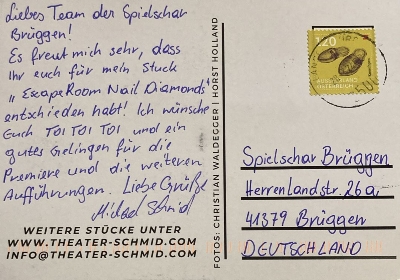 Liebes Team der Spielschar
Brüggen!
Es freut mich sehr, dass
Ihr euch für mein Stück
"Escape Room Nail Diamonds"
entschieden habt! Ich wünsche
Euch TOI TOI TOI und ein
gutes Gelingen für die
Premiere und die weiteren
Aufführungen. Liebe Grüße
Michael Schmid
WEITERE STÜCKE UNTER
WWW.THEATER-SCHMID.COM
INFO@THEATER-SCHMID.COM
FOTOS: CHRISTIAN WALDEGGER | HORST HOLLAND
120
ÖSTERREICH
Spielschar Brüggen
Herrenlandstr. 26a
41379 Brüggen
DEUTSCHLAND